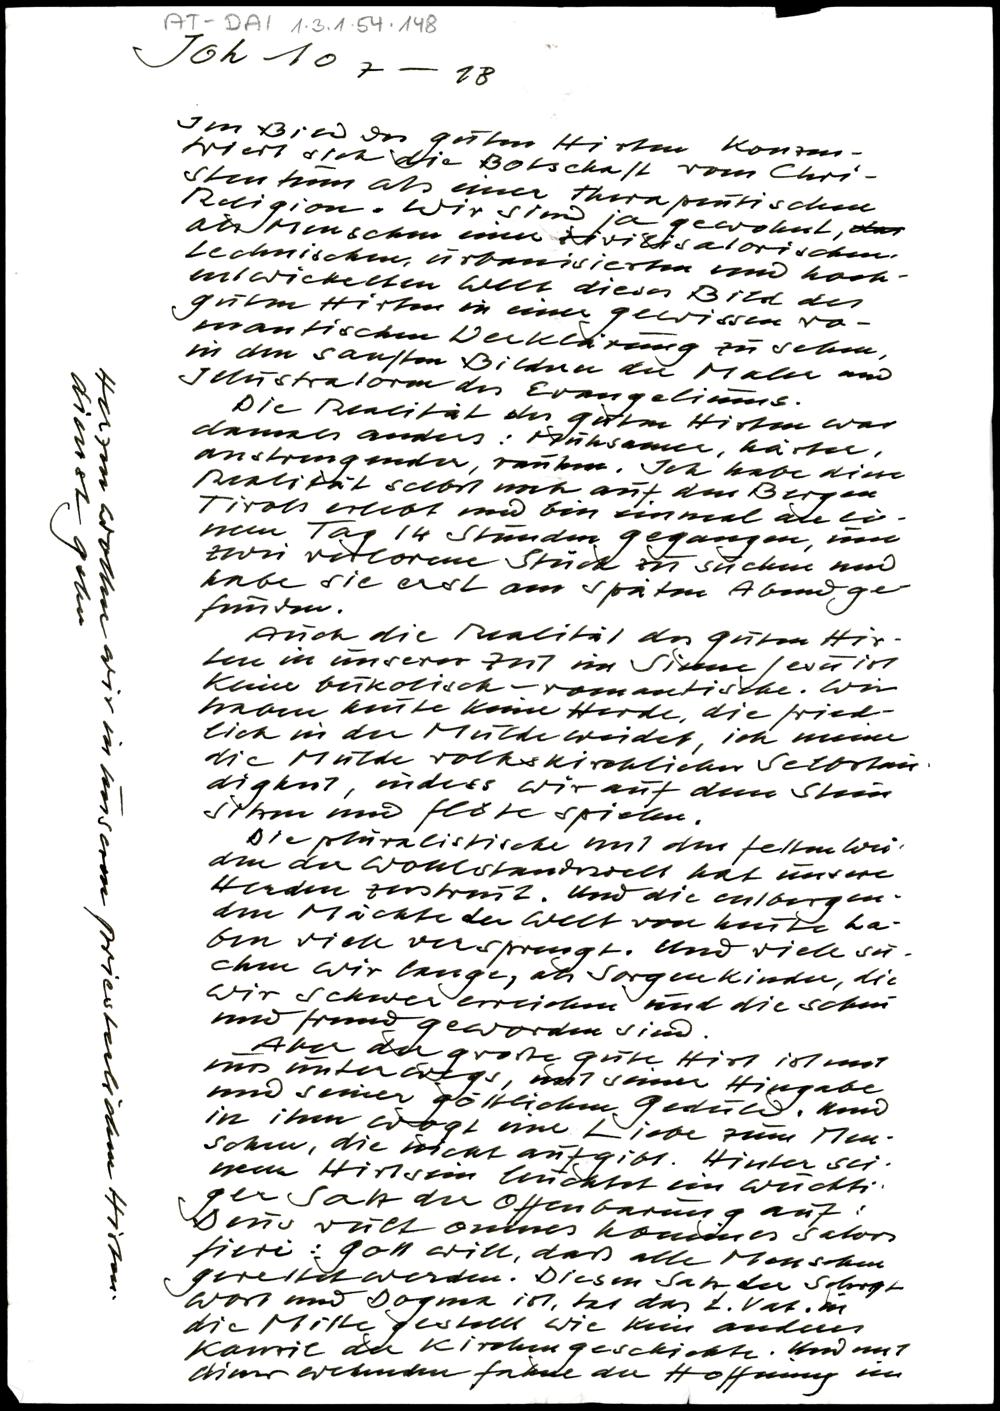 AT-DAI 1.3.1.54.148
Joh 10 7 – 18
Im Bild des guten Hirten konzen-
triert sich die Botschaft vom Chri-
stentum als einer therapeutischen
Religion. Wir sind ja gewohnt,
als Menschen einer zivilisatorischen
technischen, urbanisierten und hoch-
entwickelten Welt dieses Bild des
guten Hirten in einer gewissen ro-
mantischen Verklärung zu sehen,
in den sanften Bildern der Maler und
Illustratoren des Evangeliums.
Die Realität des guten Hirten war
damals anders: mühsamer, härter,
anstrengender, rauher. Ich habe diese
Realität selbst noch auf den Bergen
Tirols erlebt und bin einmal an ei-
nem Tag 14 Stunden gegangen, um
zwei verlorene Stück zu suchen und
habe sie erst am späten Abend ge-
funden.
Auch die Realität des guten Hir-
ten in unserer Zeit im Sinne Jesu ist
keine bukolisch-romantische. Wir
haben heute keine Herde, die fried-
lich in der Mulde weidet, ich meine
die Mulde volkskirchlicher Selbstän-
digkeit, indess wir auf dem Stein
sitzen und Flöte spielen.
Die pluralistische mit den fetten Wei-
den der Wohlstandswelt hat unsere
Herden zerstreut. Und die entbergen-
den Mächte der Welt von heute ha-
ben viele versprengt. Und viele su-
chen wir lange, als Sorgenkinder, die
wir schwer erreichen und die scheu
und fremd geworden sind.
Aber der grosse gute Hirt ist mit
uns unterwegs, mit seiner Hingabe
und seiner göttlichen Geduld. Und
in ihm wogt eine Liebe zum Men-
schen, die nicht aufgibt. Hinter sei-
nem Hirtsein leuchtet ein wuchti-
ger Satz der Offenbarung auf:
Deus vult omnes homines salvos
fieri: Gott will, dass alle Menschen
gerettet werden. Diesen Satz der Schrift
Wort und Dogma ist, hat das 2. Vat. in
die Mitte gestellt wie kein anderes
Konzil der Kirchengeschichte. Und mit
dieser wehenden Fahne der Hoffnung im
Herzen wollen wir in unserem priesterlichen Hirten-
dienst gehen